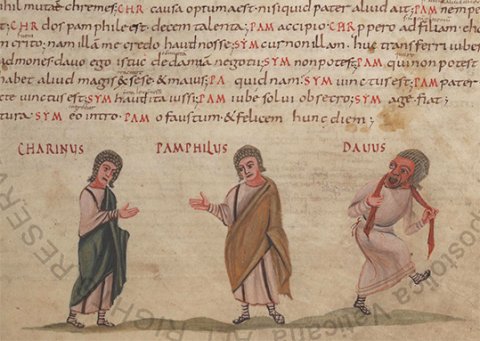 phil mutat chremes; CHR causa optima est. nisi quid pater aliud ait; PAM nempe
CHR dos pamphile est decem talenta; PAM accipio. CHR propero ad filiam. eho
crito. nam illam me credo haud nosse; SYM cur non illam huc transferri iubes
admones. davo ego istuc dedam iam negoti; SYM non potest; PAM qui non potest
habet aliud magis ex sese & maius; PA quid nam. SYM vinctus est; PAM pater
recte vinctus est; SYM haud ita iussi; PAM iube solui obsecro; SYM age fiat;
tura SYM eo intro. PAM o faustum & felicem hunc diem;
CHARINUS PAMPHILUS DAVUS
Apostolica Vaticana
ALL RIGHTS RESERVED